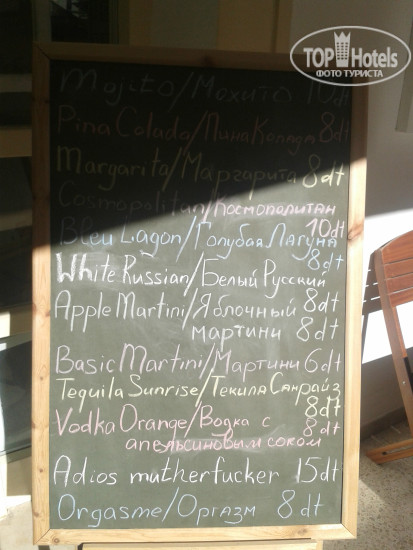 TOP Hotels
ФОТО ТУРИСТА
Mojito/Мохито 10dt
Pina Colada/Пина Колада 8dt
Margarita/Маргарита 8dt
Cosmopolitan/Космополитан 10dt
Bleu Lagon/Голубая Лагуна 8dt
White Russian/Белый Русский 8dt
Apple Martini/Яблочный
мартини 8dt
Basic Martini/Мартини 6dt
Tequila Sunrise/Текила Санрайз 8dt
Vodka Orange/Водка с 8dt
апельсиновым соком
Adios mutherfucker 15dt
Orgasme/Оргазм 8dt